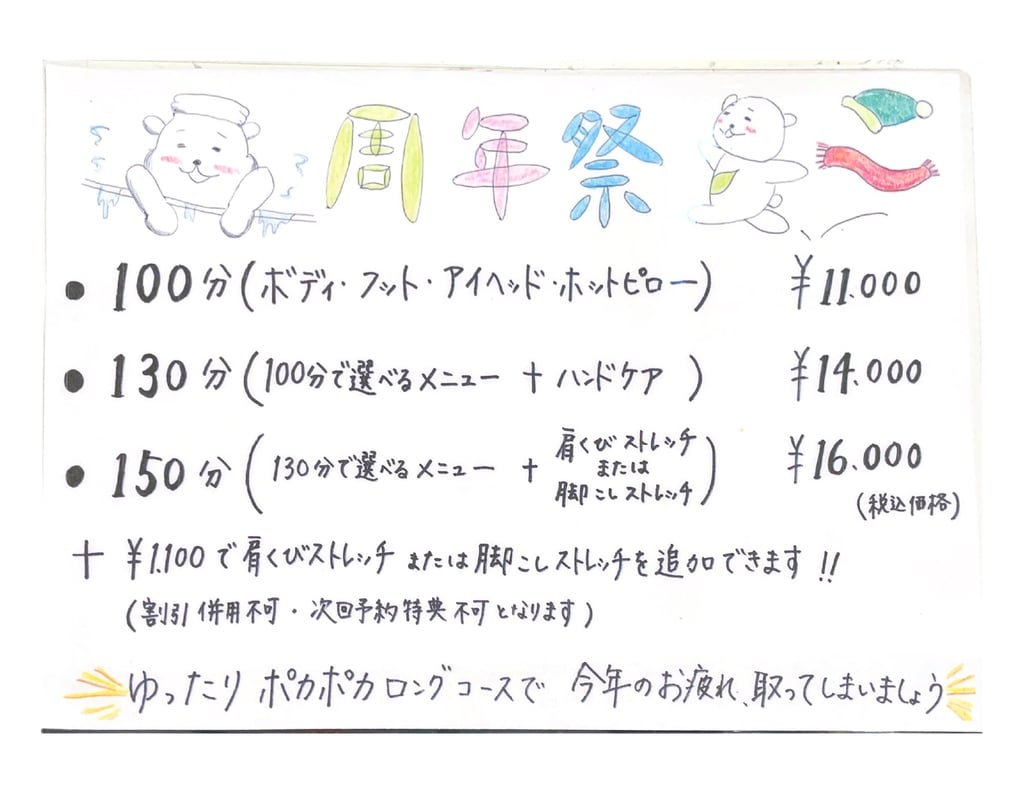 周年祭
• 100分(ボディ・フット・アイヘッド・ホットピロー) ¥11.000
• 130分(100分で選べるメニュー + ハンドケア) ¥14.000
• 150分(130分で選べるメニュー + 肩くびストレッチ または 脚こしストレッチ) ¥16.000
(税込価格)
+ ¥1.100で肩くびストレッチ または脚こしストレッチを追加できます!!
(割引併用不可・次回予約特典不可となります)
ゆったりポカポカロングコースで 今年のお疲れ、取ってしまいましょう